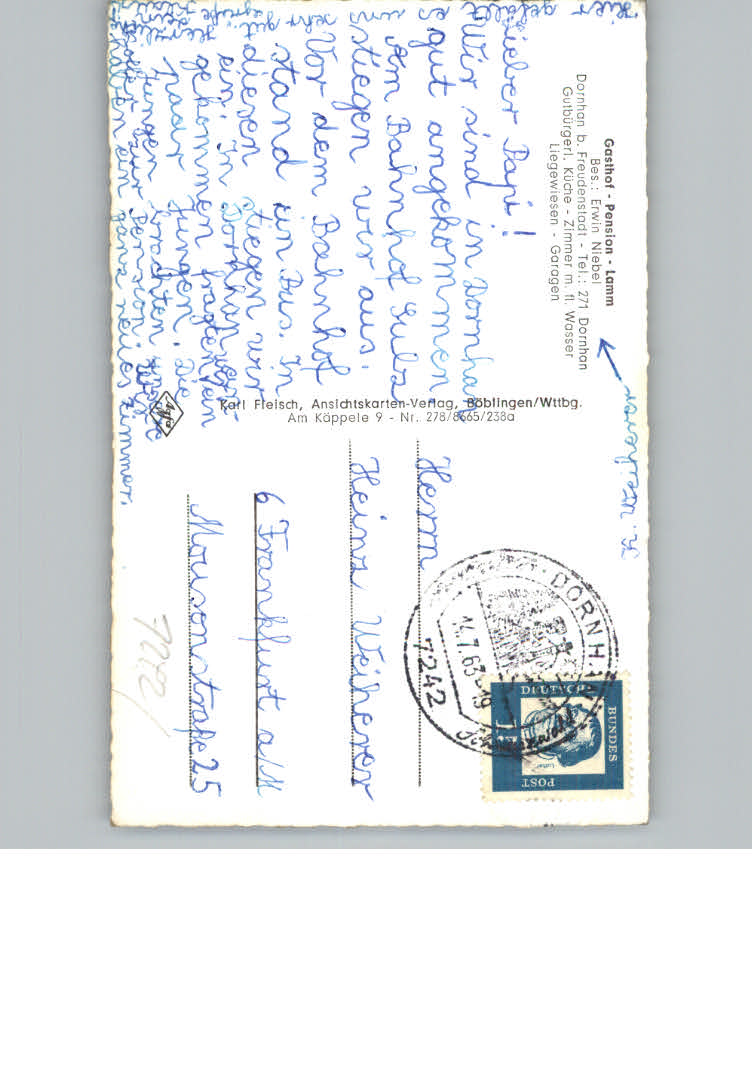 Gasthof - Pension - Lamm
Bes.: Erwin Niebel
Dornhan b. Freudenstadt - Tel.: 271 Dornhan
Gutbürgerl. Küche - Zimmer m. fl. Wasser
Liegewiesen - Garagen
Lieber Papi!
Wir sind in Dornhan
gut angekommen.
Am Bahnhof Sulz
stiegen wir aus.
Vor dem Bahnhof
stand ein Bus. In
diesen stiegen wir
ein. In Dornhan an-
gekommen fragten wir
paar Jungen. Die
Jungen brachten uns
zur Pension. Wir
haben ein ganz tolles Zimmer.
Hier gefällt
es uns
sehr gut
Karl Fleisch, Ansichtskarten-Verlag, Böblingen/Wttbg.
Am Käppele 9 - Nr. 278/8665/238a
Agfa
Herrn
Heinz Weiherer
6 Frankfurt a/M
Mousonstraße 25
DORNHAN
14.7.63-19
7242
DEUTSCHE
BUNDES
POST
Luther
7242/